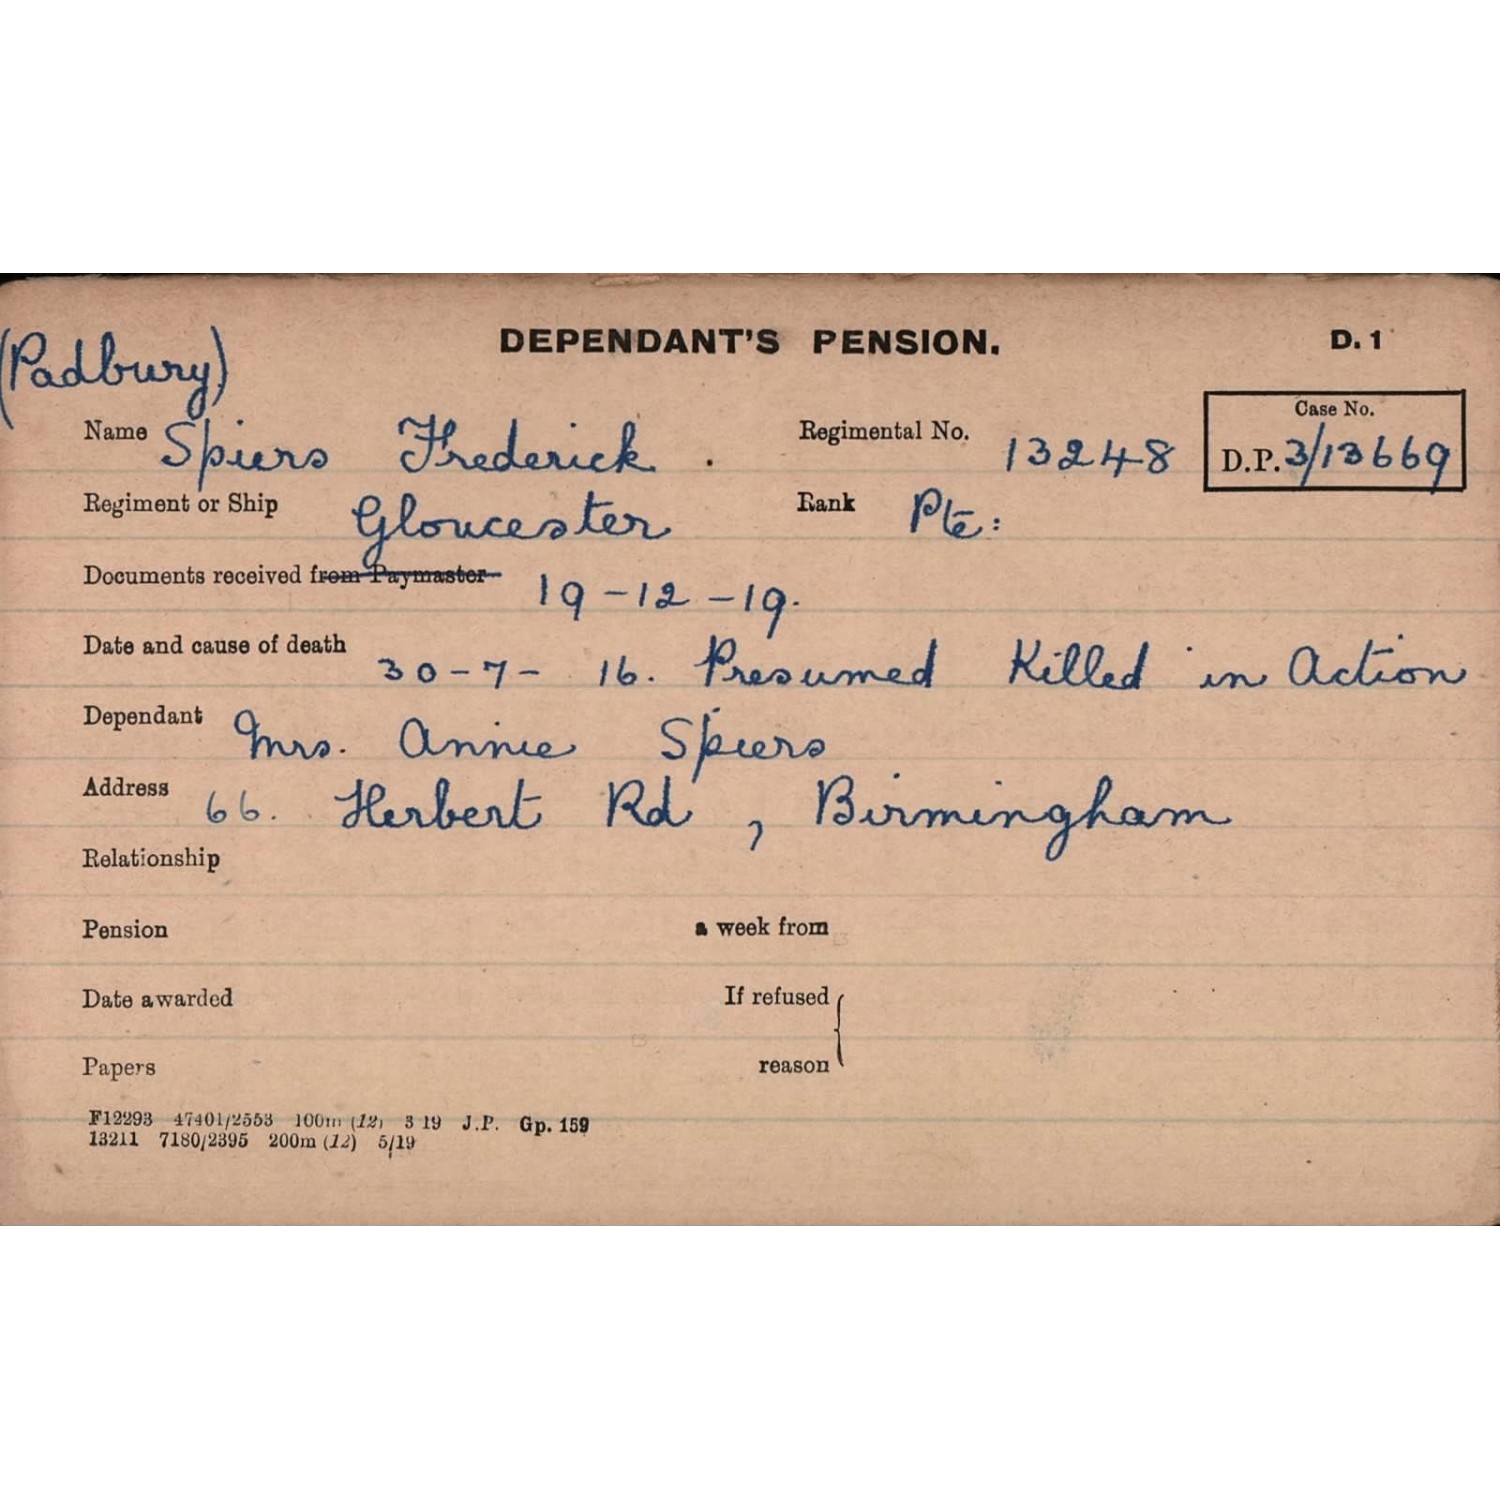 DEPENDANT'S PENSION. D. 1
(Padbury)
Case No.
Name Spiers Frederick . Regimental No. 13248 D.P. 3/13669
Regiment or Ship Gloucester Rank Pte:
Documents received from Paymaster 19-12-19.
Date and cause of death 30-7-16. Presumed Killed in Action
Dependant Mrs. Annie Spiers
Address 66. Herbert Rd, Birmingham
Relationship
Pension a week from
Date awarded If refused
Papers reason
F12293 47401/2553 100m (12) 3 19 J.P. Gp. 159
13211 7180/2395 200m (12) 5/19